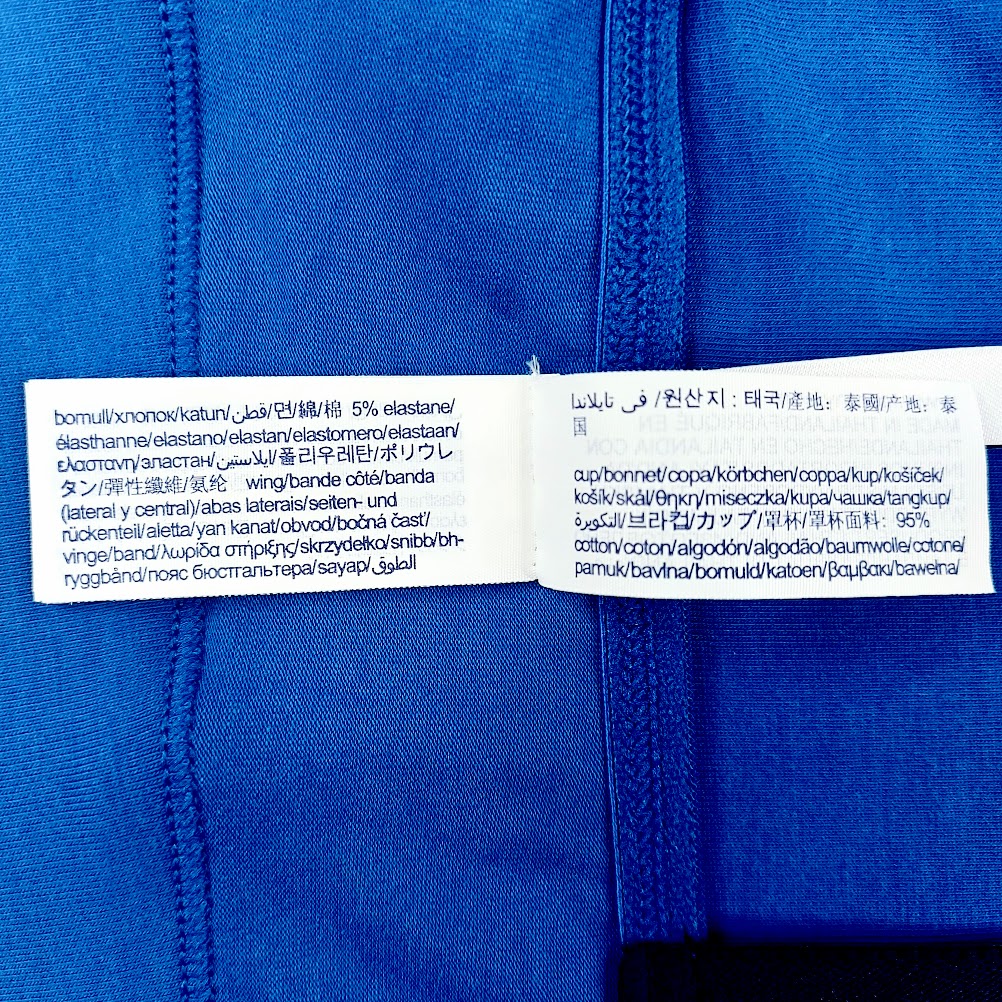 bomull/хлопок/katun/قطن/면/綿/棉 5% elastane/
élasthanne/elastano/elastan/elastomero/elastaan/
ελαστανη/эластан/ايلاستين/폴리우레탄/ポリウレ
タン/彈性纖維/氨纶 wing/bande côté/banda
(lateral y central)/abas laterais/seiten- und
rückenteil/aletta/yan kanat/obvod/bočná časť/
vinge/band/λωρίδα στήριξης/skrzydełko/snibb/bh-
ryggbånd/пояс бюстгальтера/sayap/الطوق
في تايلاندا/원산지 : 태국/產地: 泰國/产地: 泰
国
cup/bonnet/copa/körbchen/coppa/kup/košíček/
košík/skål/θηκη/miseczka/kupa/чашка/tangkup/
التكويرة/브라컵/カップ/罩杯/罩杯面料: 95%
cotton/coton/algodón/algodão/baumwolle/cotone/
pamuk/bavlna/bomuld/katoen/βαμβακι/bawełna/